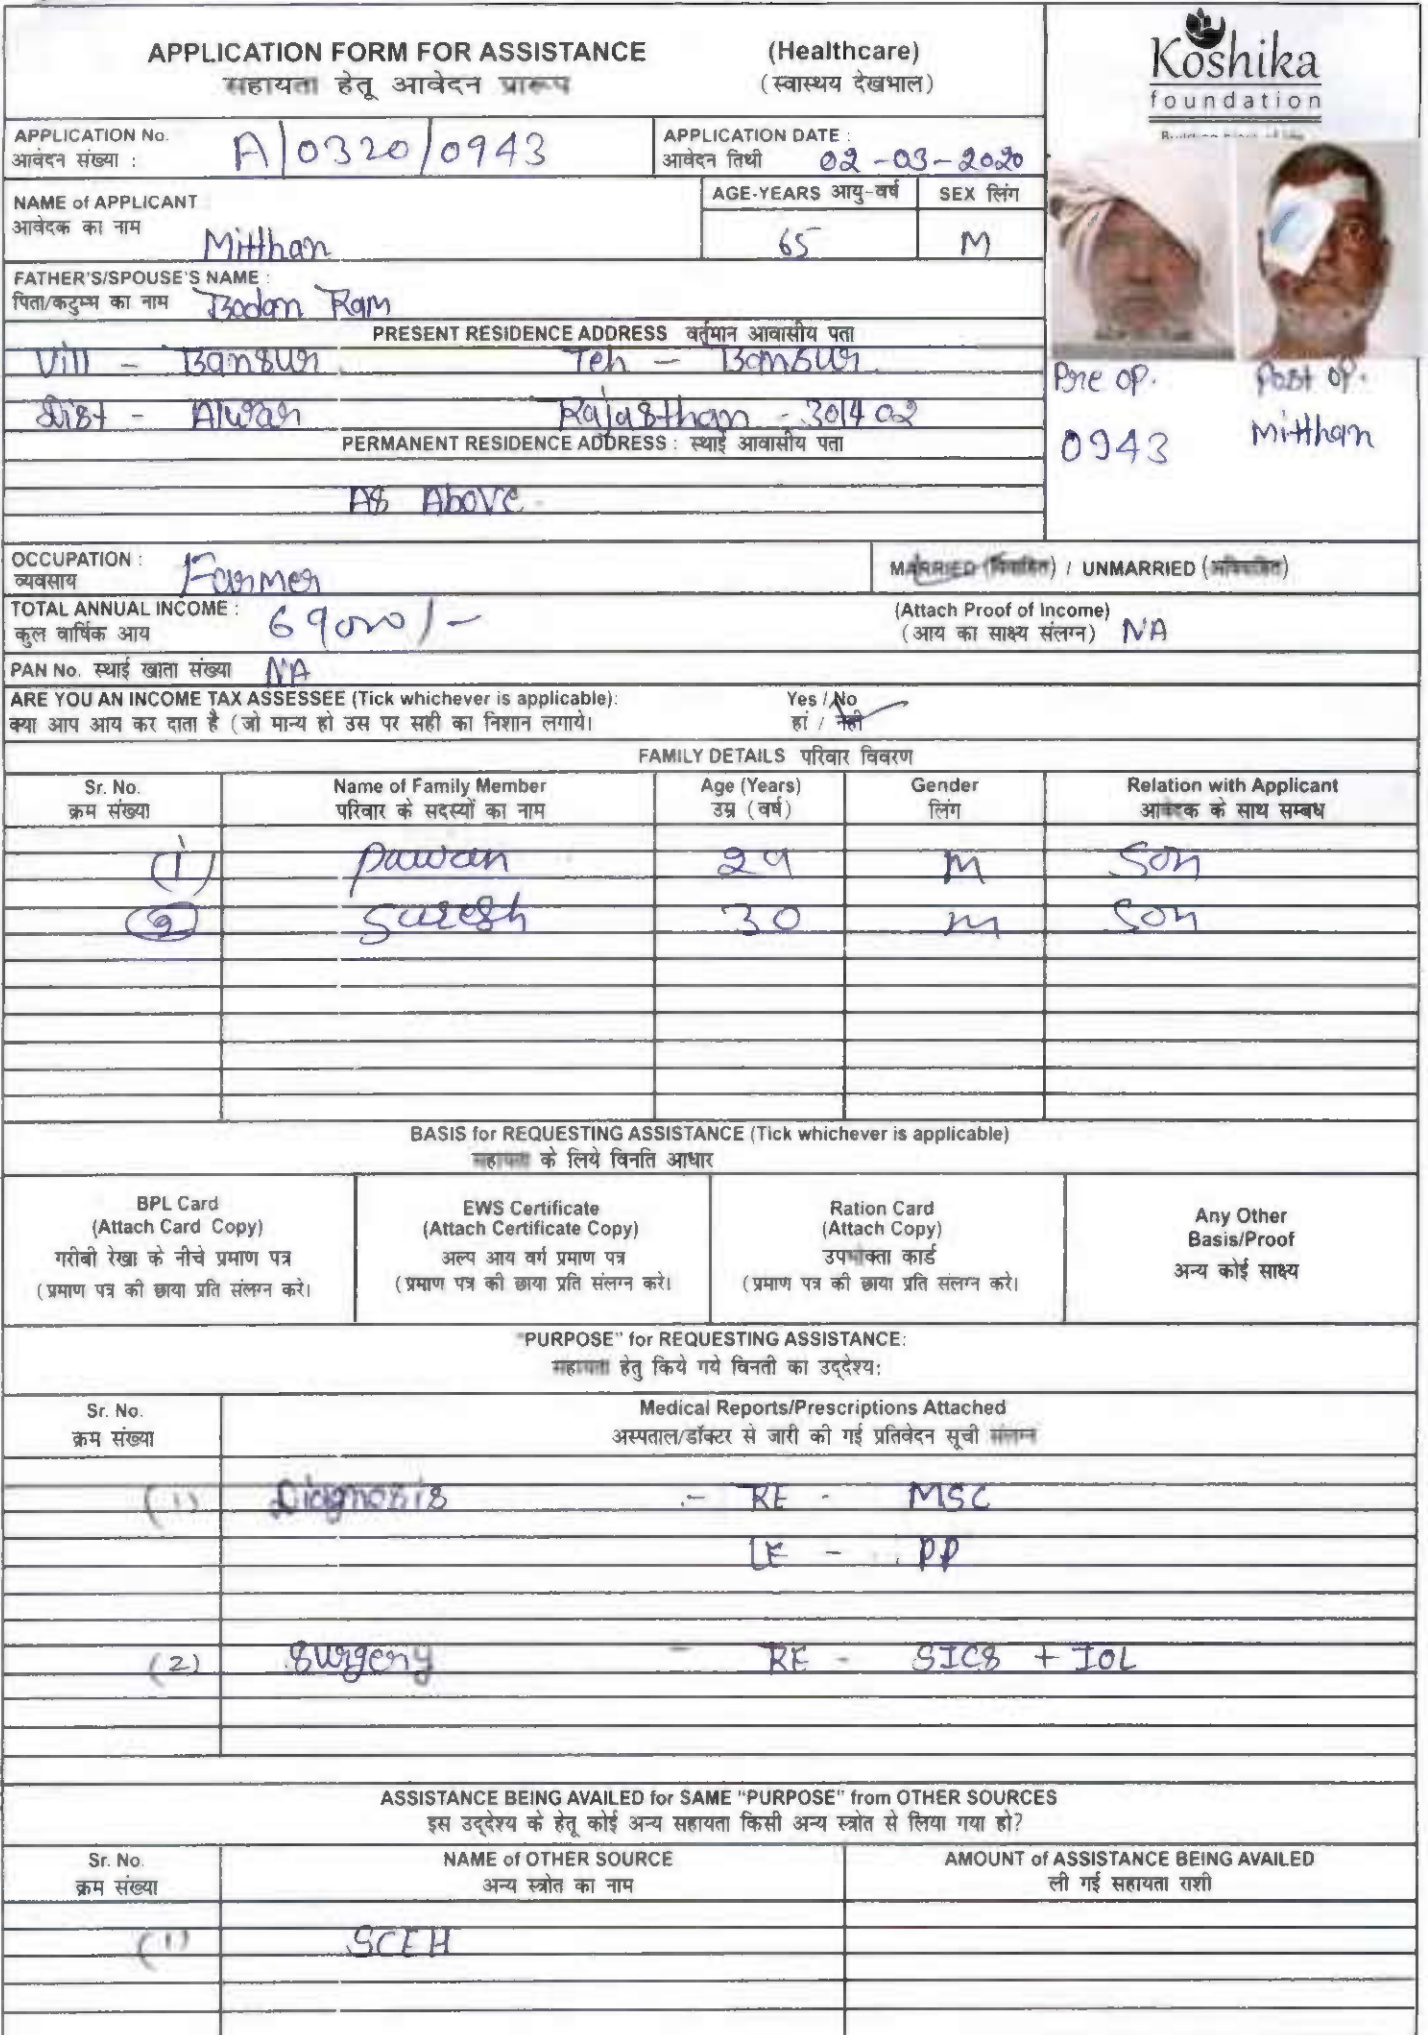 APPLICATION FORM FOR ASSISTANCE (Healthcare)
सहायता हेतू आवेदन प्रारूप (स्वास्थय देखभाल)
Koshika
foundation
APPLICATION No.
आवेदन संख्या : A/0320/0943
APPLICATION DATE :
आवेदन तिथी 02-03-2020
NAME of APPLICANT
आवेदक का नाम Mitthan
AGE-YEARS आयु-वर्ष
65
SEX लिंग
M
FATHER'S/SPOUSE'S NAME :
पिता/कटुम्भ का नाम Bodan Ram
PRESENT RESIDENCE ADDRESS वर्तमान आवासीय पता
Vill - Bansur Teh - Bansur
Dist - Alwar Rajasthan - 301402
Pre op. Post op.
0943 Mitthan
PERMANENT RESIDENCE ADDRESS : स्थाई आवासीय पता
As Above.
OCCUPATION :
व्यवसाय Farmer
MARRIED / UNMARRIED
TOTAL ANNUAL INCOME :
कुल वार्षिक आय 69000/-
(Attach Proof of Income)
(आय का साक्ष्य संलग्न) NA
PAN No. स्थाई खाता संख्या NA
ARE YOU AN INCOME TAX ASSESSEE (Tick whichever is applicable): Yes / No
क्या आप आय कर दाता है (जो मान्य हो उस पर सही का निशान लगाये। हां / नही
FAMILY DETAILS परिवार विवरण
Sr. No. Name of Family Member Age (Years) Gender Relation with Applicant
क्रम संख्या परिवार के सदस्यों का नाम उम्र (वर्ष) लिंग आवेदक के साथ सम्बध
(1) Pawan 29 M Son
(2) Suresh 30 M Son
BASIS for REQUESTING ASSISTANCE (Tick whichever is applicable)
सहायता के लिये विनति आधार
BPL Card
(Attach Card Copy)
गरीबी रेखा के नीचे प्रमाण पत्र
(प्रमाण पत्र की छाया प्रति संलग्न करे।
EWS Certificate
(Attach Certificate Copy)
अल्प आय वर्ग प्रमाण पत्र
(प्रमाण पत्र की छाया प्रति संलग्न करे।
Ration Card
(Attach Copy)
उपभोक्ता कार्ड
(प्रमाण पत्र की छाया प्रति संलग्न करे।
Any Other
Basis/Proof
अन्य कोई साक्ष्य
"PURPOSE" for REQUESTING ASSISTANCE:
सहायता हेतु किये गये विनती का उद्देश्य:
Sr. No. Medical Reports/Prescriptions Attached
क्रम संख्या अस्पताल/डॉक्टर से जारी की गई प्रतिवेदन सूची संलग्न
(1) Diagnosis - RE - MSC
LE - PP
(2) Surgery - RE - SICS + IOL
ASSISTANCE BEING AVAILED for SAME "PURPOSE" from OTHER SOURCES
इस उद्देश्य के हेतू कोई अन्य सहायता किसी अन्य स्त्रोत से लिया गया हो?
Sr. No. NAME of OTHER SOURCE AMOUNT of ASSISTANCE BEING AVAILED
क्रम संख्या अन्य स्त्रोत का नाम ली गई सहायता राशी
(1) SCEH